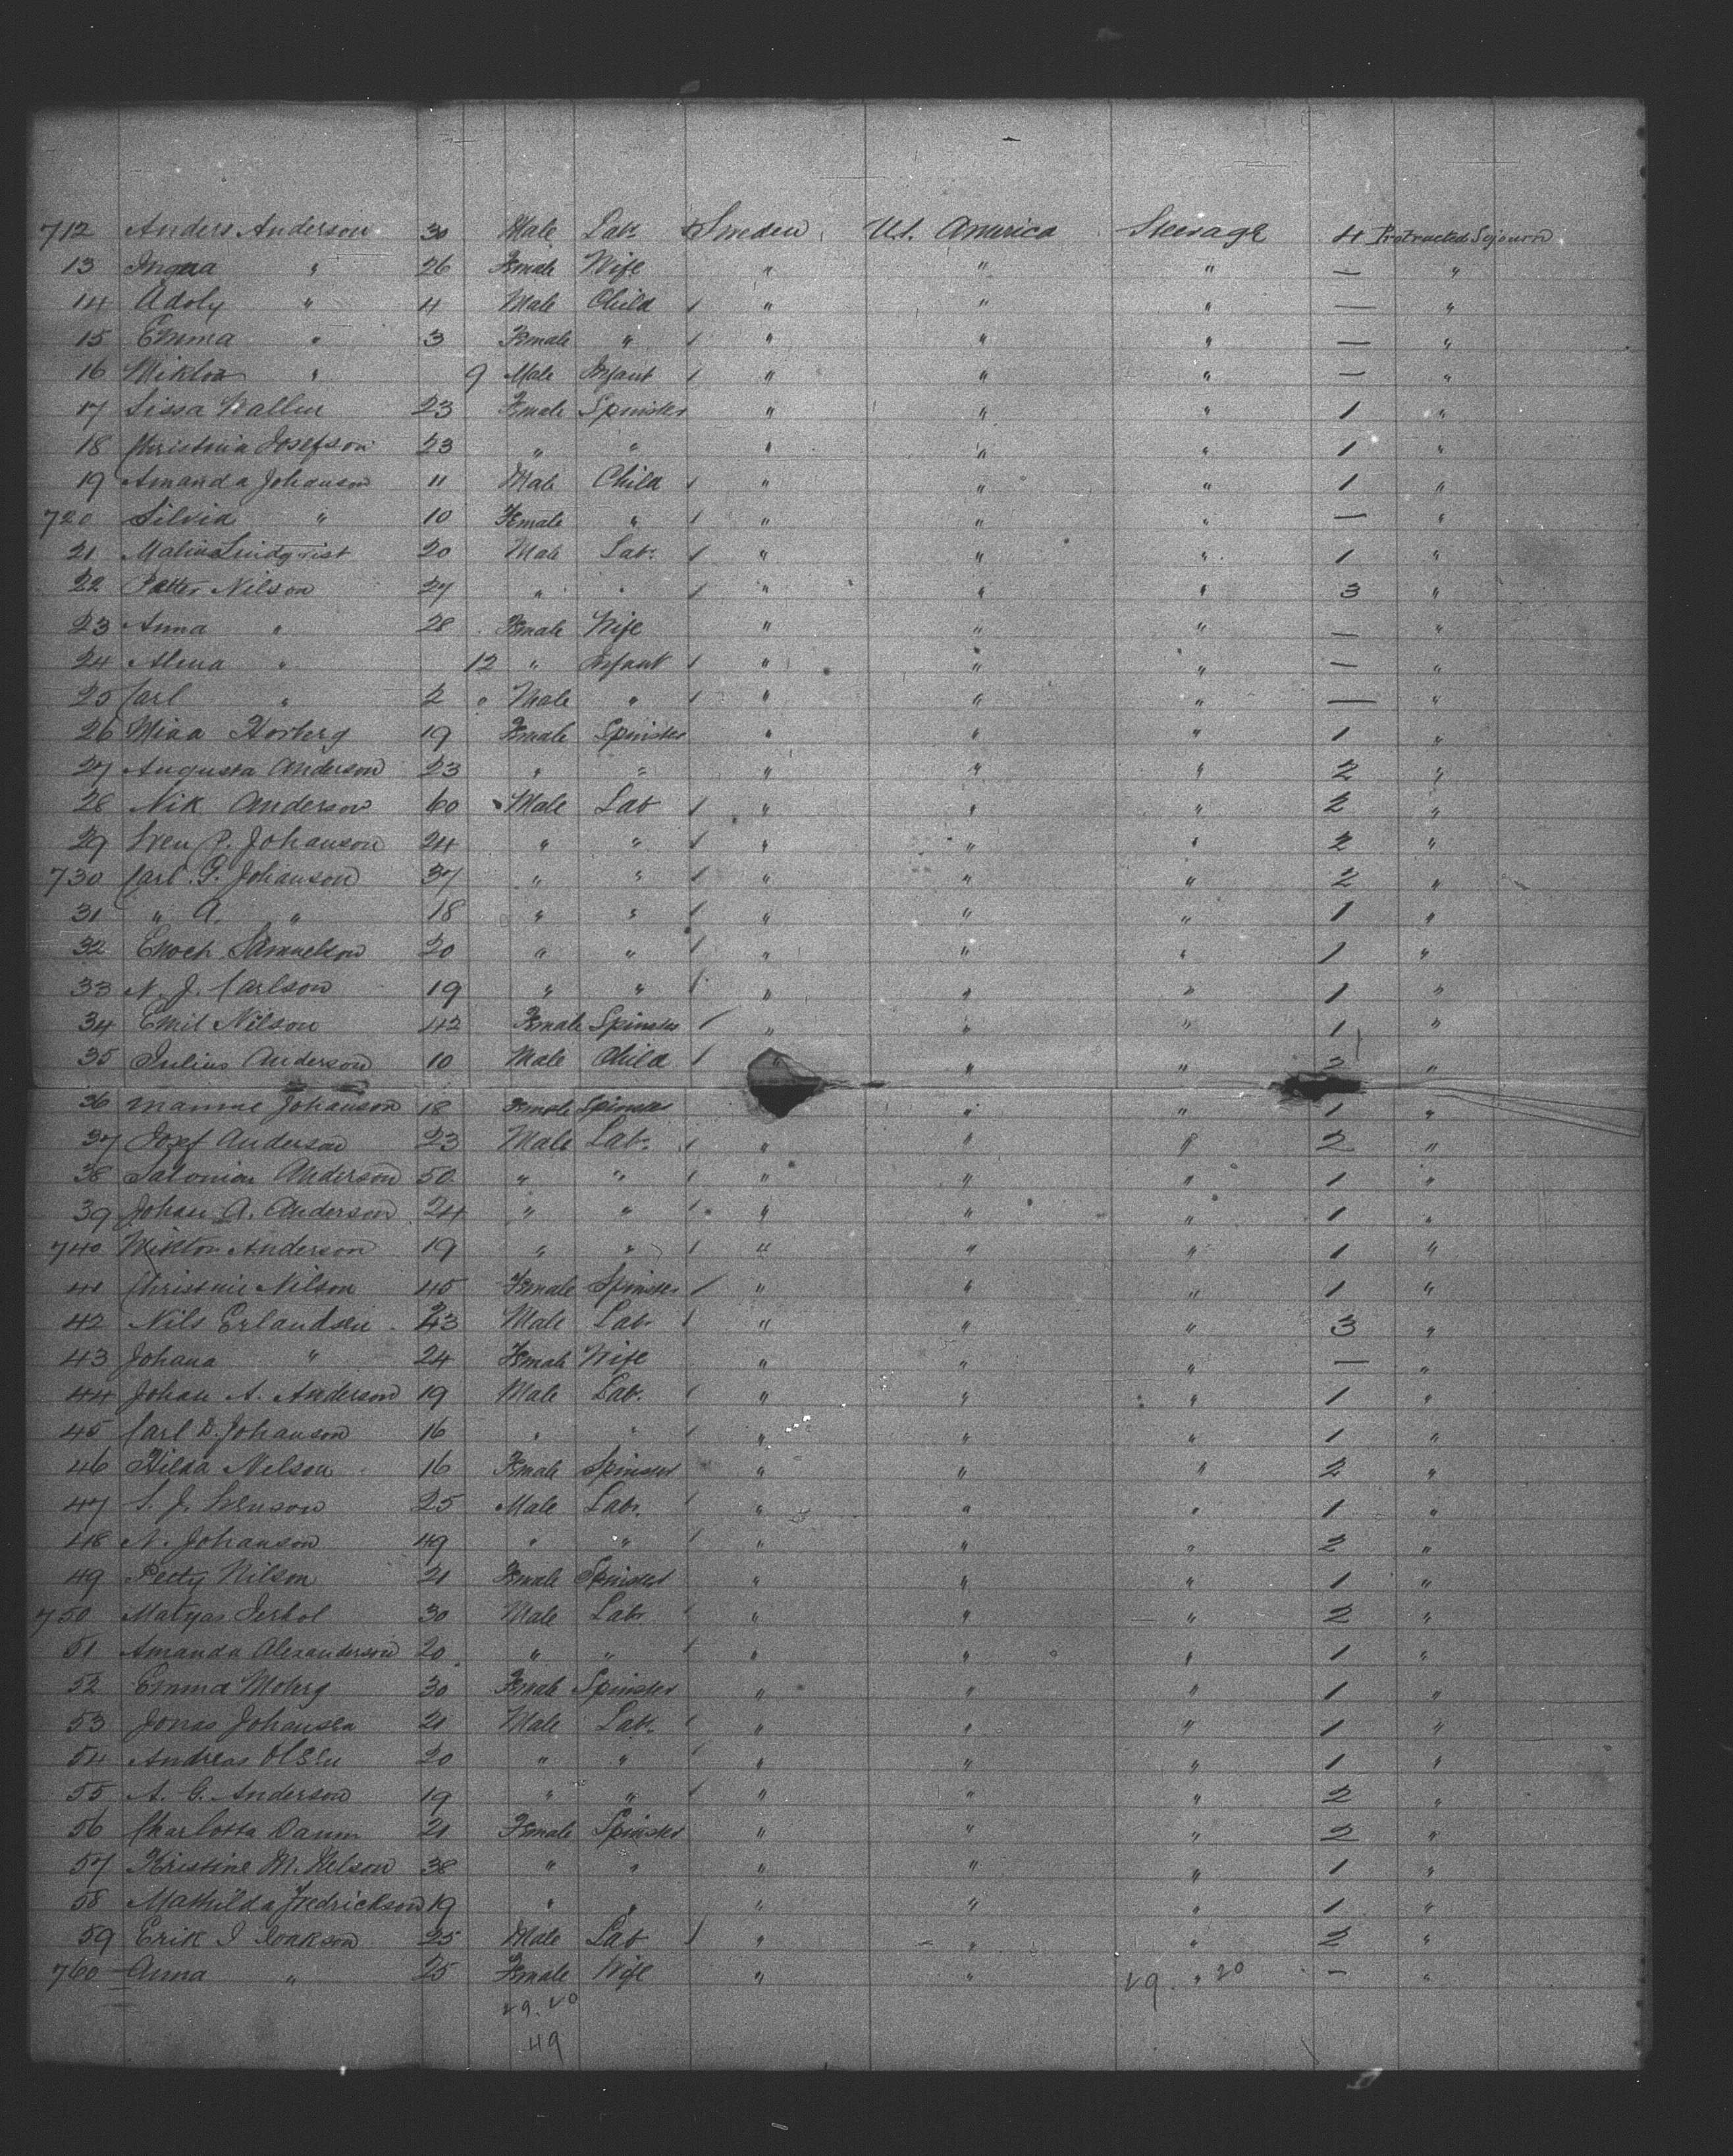 712 Anders Anderson 30 Male Lab Sweden U.S. America Steerage 4 Protracted Sojourn
13 " 26 Female Wife " " " — "
14 Adolf " 4 Male Child / " " " — "
15 Emma " 3 Female " / " " " — "
16 " 9 Male Infant / " " " — "
17 Sissa Wallin 23 Female Spinster " " " 1 "
18 Christina Josefson 23 " " " " " 1 "
19 Amanda Johanson 11 Male Child / " " " 1 "
720 Silvia " 10 Female " / " " " — "
21 Malin Lindqvist 20 Male Lab. / " " " 1 "
22 Petter Nilson 27 " " / " " " 3 "
23 Anna " 28 Female Wife " " " — "
24 Alma " 12 " Infant / " " " — "
25 Carl " 2 " Male " / " " " — "
26 19 Female Spinster " " " 1 "
27 Augusta Anderson 23 " " " " " 2 "
28 Nik Anderson 60 Male Lab / " " " 2 "
29 Sven P. Johanson 24 " " / " " " 2 "
730 Carl G. Johanson 37 " " / " " " 2 "
31 " A. " 18 " " / " " " 1 "
32 Enoch Samuelson 20 " " / " " " 1 "
33 N. J. Carlson 19 " " / " " " 1 "
34 Emil Nilson 42 Female Spinster / " " " 1 "
35 Julius Anderson 10 Male Child / " " " 2 "
36 Johanson 18 Female Spinster " " 1 "
37 Josef Anderson 23 Male Lab. / " " " 2 "
38 Salomion Anderson 50 " " / " " " 1 "
39 Johan A. Anderson 24 " " / " " " 1 "
740 Anderson 19 " " / " " " 1 "
41 Christine Nilson 45 Female Spinster / " " " 1 "
42 Nils Erlandsen 23 Male Lab. / " " " 3 "
43 Johana " 24 Female Wife " " " — "
44 Johan A. Anderson 19 Male Lab. / " " " 1 "
45 Carl D. Johanson 16 " " / " " " 1 "
46 Hilda Nelson 16 Female Spinster " " " 2 "
47 S. J. Svenson 25 Male Lab. / " " " 1 "
48 N. Johanson 49 " " / " " " 2 "
49 Petty Nilson 21 Female Spinster " " " 1 "
750 Matyas 30 Male Lab. / " " " 2 "
51 Amanda Alexanderson 20 " " / " " " 1 "
52 Emma Moberg 30 Female Spinster " " " 1 "
53 Jonas Johansen 21 Male Lab. / " " " 1 "
54 Andreas Olsen 20 " " / " " " 1 "
55 A. G. Anderson 19 " " / " " " 2 "
56 Charlotta Damm 21 Female Spinster " " " 2 "
57 Kristine M. Nelson 38 " " " " " 1 "
58 Mathilda Fredrickson 19 " " " " " 1 "
59 Erik J Isakson 25 Male Lab / " " " 2 "
760 Anna " 25 Female Wife " " 29. " 20 — "
29. 20
49